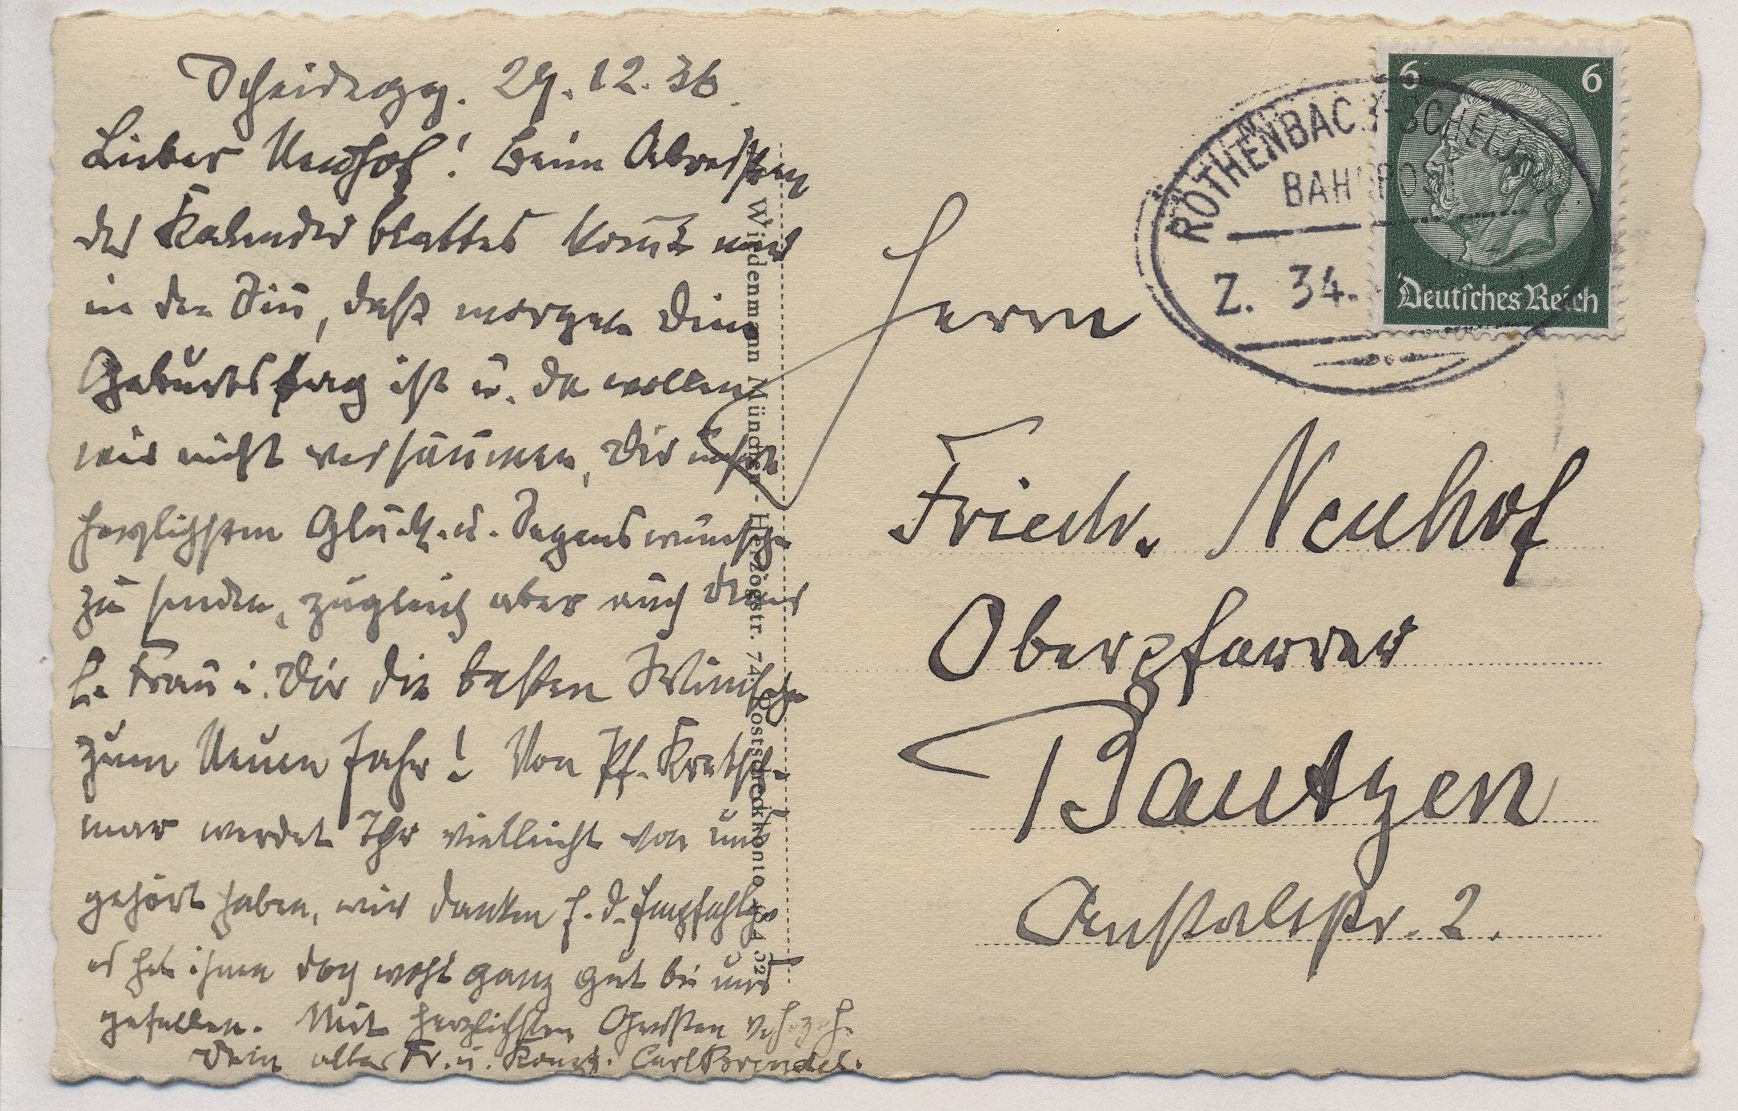 Scheidegg. 29.12.36.
Lieber Neuhof! Beim Abreißen
des Kalenderblattes kom̄t mir
in den Sin̄, daß morgen Dein
Geburtstag ist u. da wollen
wir nicht versäumen, Dir unsre
herzlichsten Glück- u. Segenswünsche
zu senden, zugleich aber auch Deiner
l. Frau u. Dir die besten Wünsche
zum Neuen Jahr! Von Pf. Kretsch-
mar werdet Ihr vielleicht von uns
gehört haben, wir danken f. d. Empfehlg.
es hat ihnen doch wohl ganz gut bei uns
gefallen. Mit herzlichsten Grüßen
Dein alter Fr. u. Carl Brendel.
Wiedenmann München - Herzogstr. 74 Postscheckkonto
Herrn
Friedr. Neuhof
Oberpfarrer
Bautzen
Anstaltstr. 2.
RÖTHENBACH-SCHEIDEGG
BAHNPOST
Z. 34.
6 6
Deutsches Reich